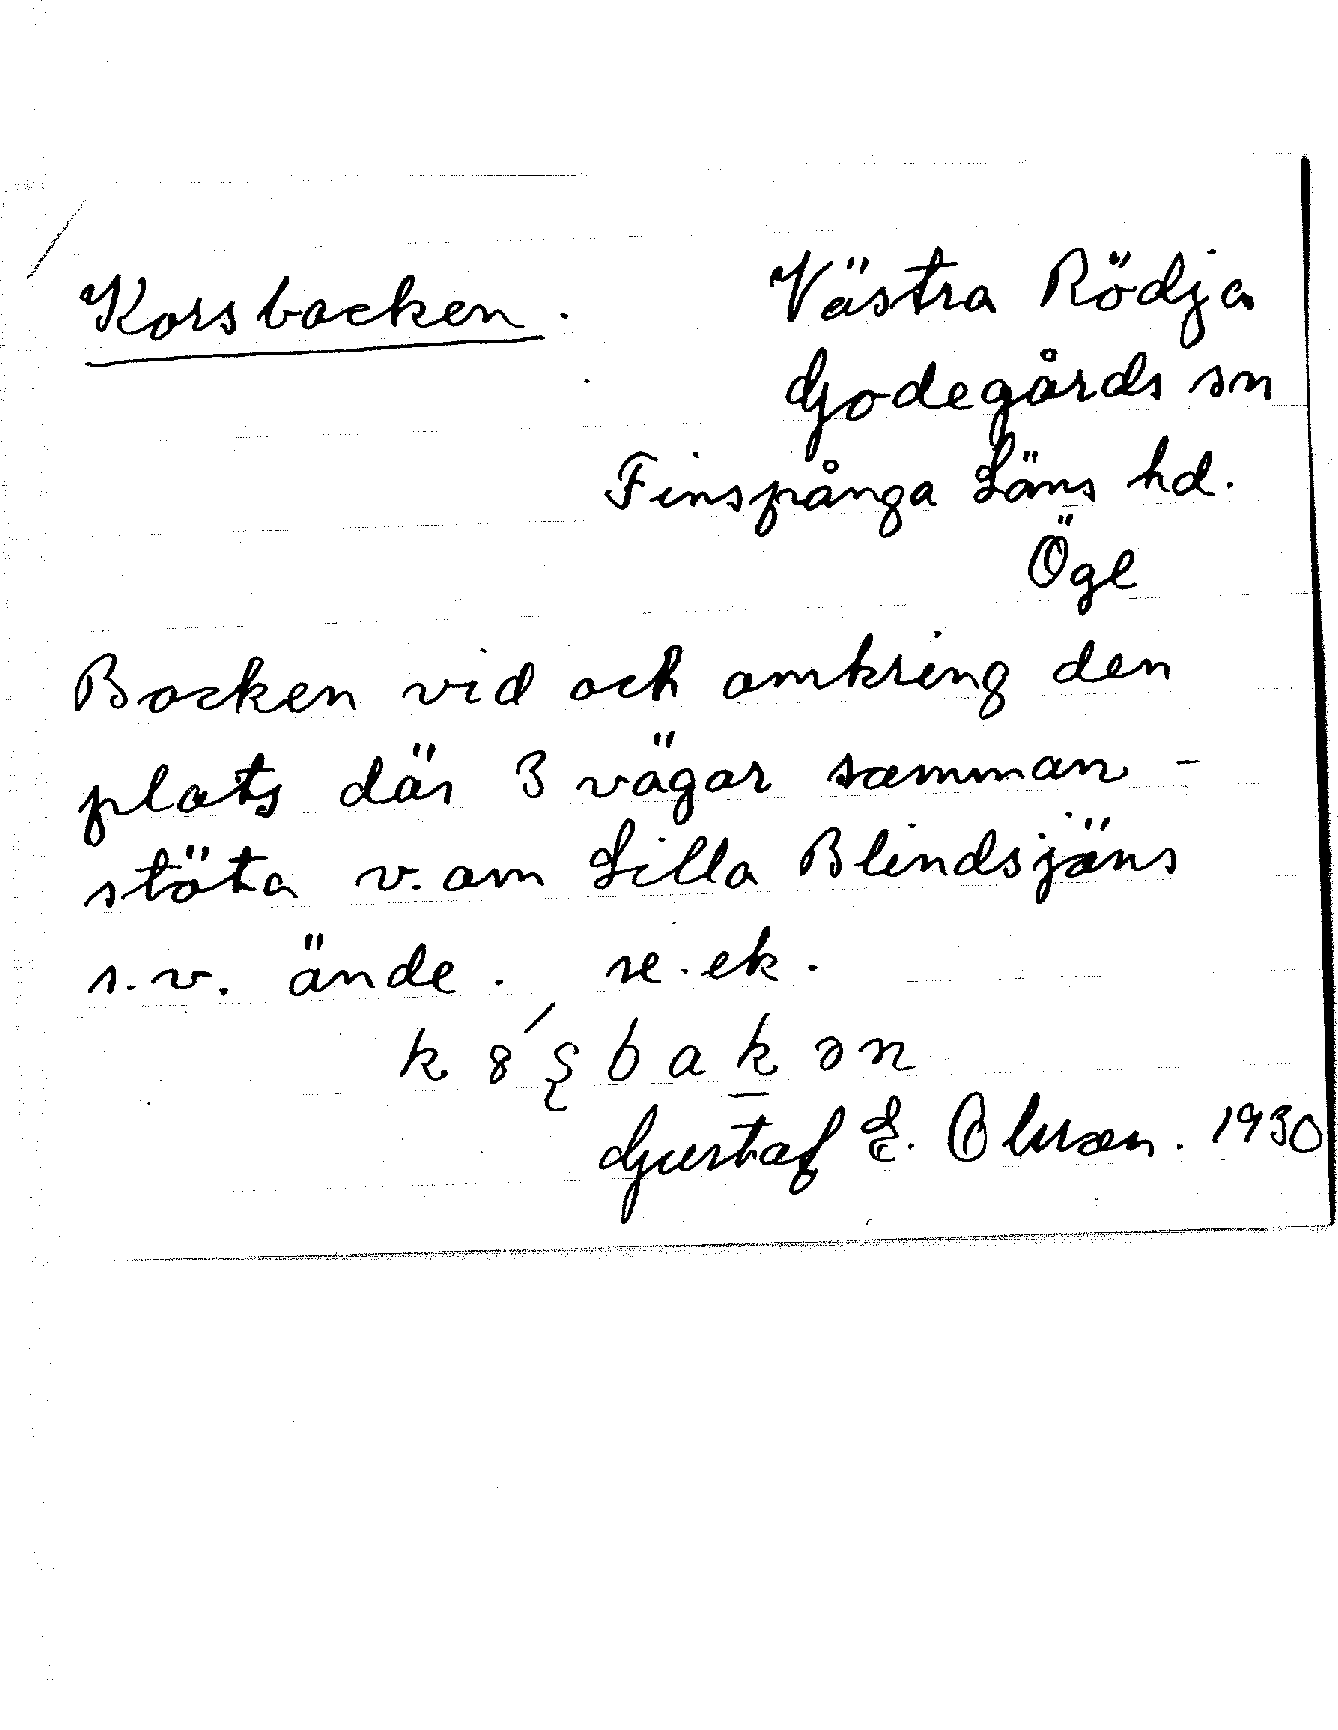 Korsbacken.
Västra Rödja
Godegårds sn
Finspånga Läns hd.
Ögl
Backen vid och omkring den
plats där 3 vägar samman-
stöta v. om Lilla Blindsjöns
s.v. ände. se. ek.
k 8 ́ʂ b a k ə n
Gustaf E. Olsson. 1930